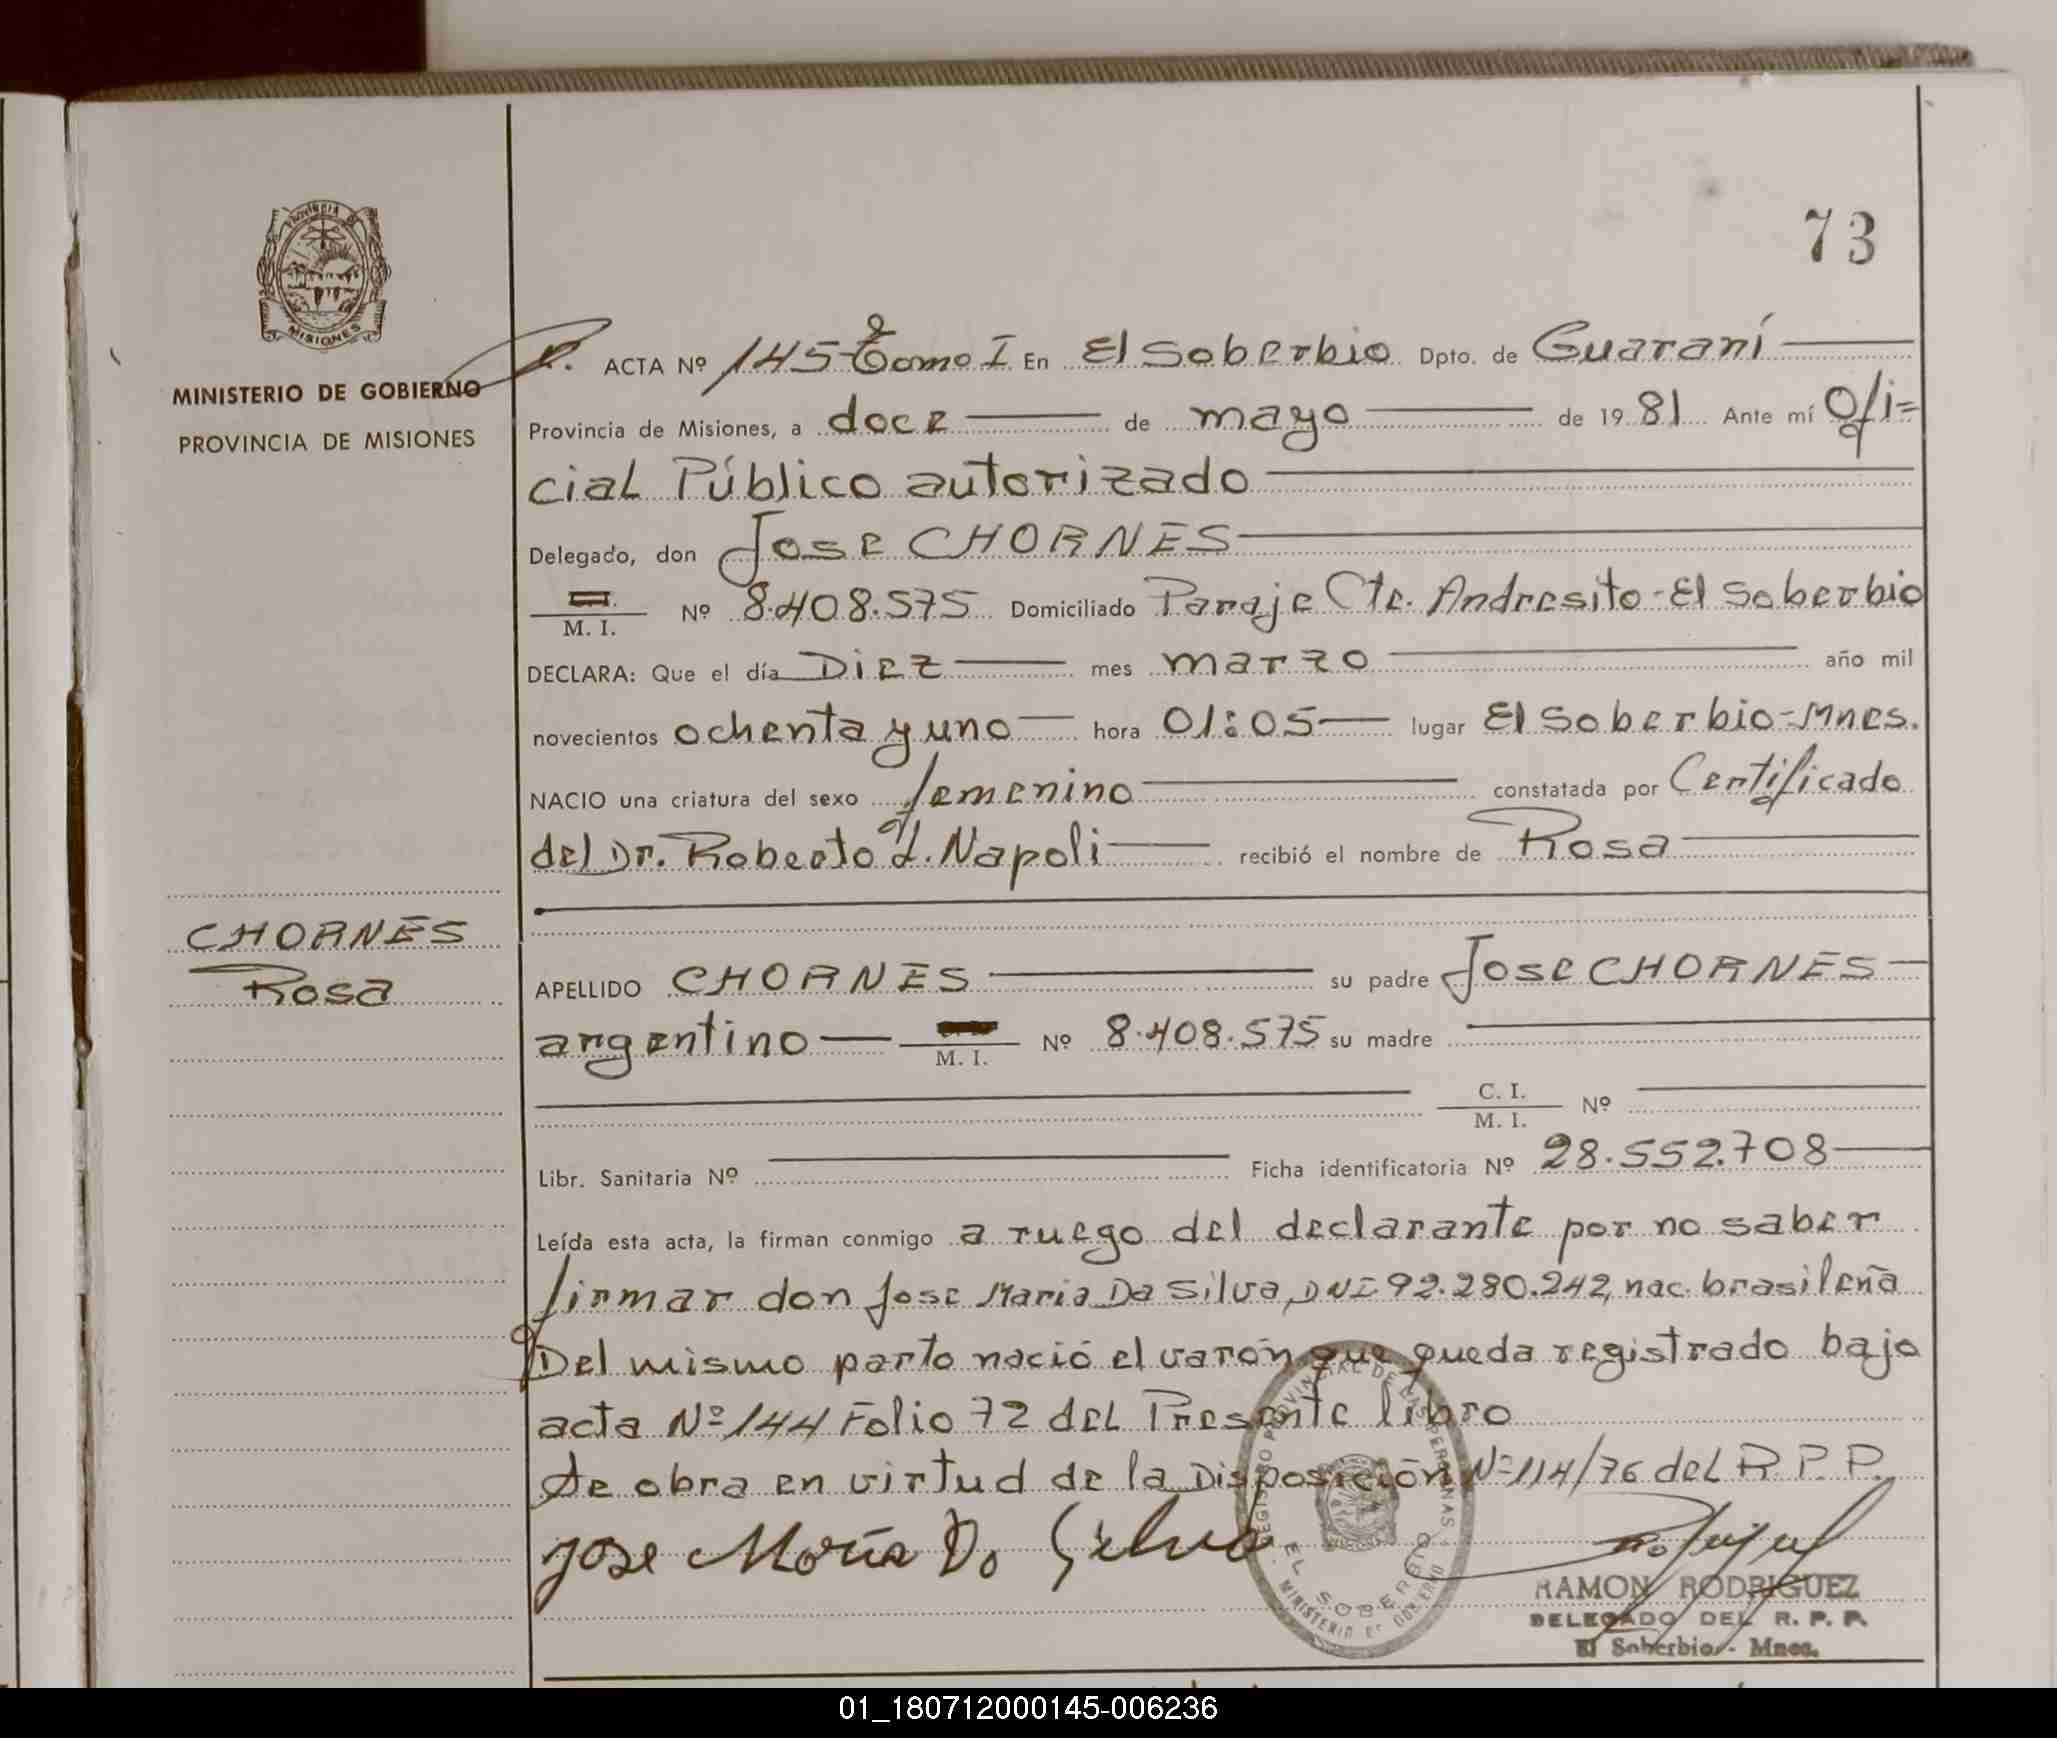 73
PROVINCIA DE
MISIONES
MINISTERIO DE GOBIERNO
PROVINCIA DE MISIONES
ACTA Nº 145 Tomo I En El Soberbio Dpto. de Guaraní
Provincia de Misiones, a doce de mayo de 1981 Ante mí Ofi=
cial Público autorizado
Delegado, don Jose CHORNES
M. I. Nº 8.408.575 Domiciliado Paraje Cte. Andresito - El Soberbio
DECLARA: Que el día Diez mes marzo año mil
novecientos ochenta y uno hora 01:05 lugar El Soberbio-Mnes.
NACIO una criatura del sexo femenino constatada por Certificado
del Dr. Roberto d. Napoli recibió el nombre de Rosa
CHORNES
Rosa
APELLIDO CHORNES su padre Jose CHORNES
argentino M. I. Nº 8.408.575 su madre
C. I.
M. I. Nº
Libr. Sanitaria Nº Ficha identificatoria Nº 28.552.708
Leída esta acta, la firman conmigo a ruego del declarante por no saber
firmar don Jose Maria Da Silva, DNI 92.280.242, nac. brasileña
Del mismo parto nació el varón que queda registrado bajo
acta Nº 144 Folio 72 del Presente libro
Se obra en virtud de la Disposición Nº 114/76 del R.P.P.
Jose Maria Da Silva
REGISTRO PROVINCIAL DE LAS PERSONAS
EL SOBERBIO
MINISTERIO DE GOBIERNO
RAMON RODRIGUEZ
DELEGADO DEL R. P. P.
El Soberbio - Mnes.
01_180712000145-006236